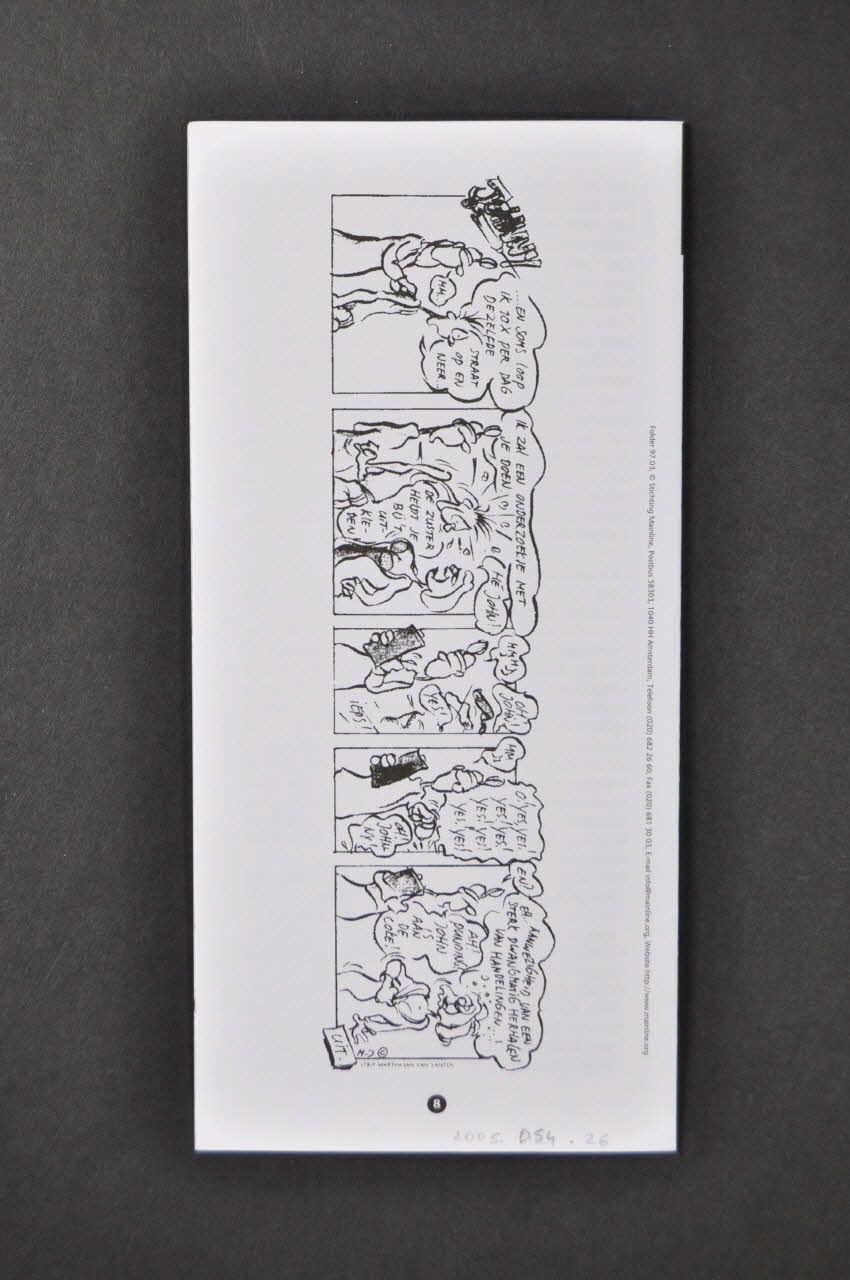 JOHNNY
...EN SOMS LOOP
IK 10X PER DAG
DEZELFDE
STRAAT
OP EN
NEER..
MM.
IK ZAL EEN ONDERZOEKJE MET
JE DOEN
HÉ JOHN!
DE ZUSTER
HELPT JE
BIJ 'T
UIT-
KLE-
DEN
OH!
JOHN!
YES!
IEPS!
O, YES, YES,
YES! YES,
YES! YES!
YES! YES!
OH!
JOHN-
NY!
EN?
EH.. AANWEZIGHEID VAN EEN
STERK DWANGMATIG HERHALEN
VAN HANDELINGEN...!
AH!
JOHN
IS
AAN
DE
COKE!
UIT.
M.J ©
Folder 97.03, © Stichting Mainline, Postbus 58303, 1040 HH Amsterdam, Telefoon (020) 682 26 60, Fax (020) 681 30 03, E-mail info@mainline.org, Website http://www.mainline.org
8
2005. DS4. 26